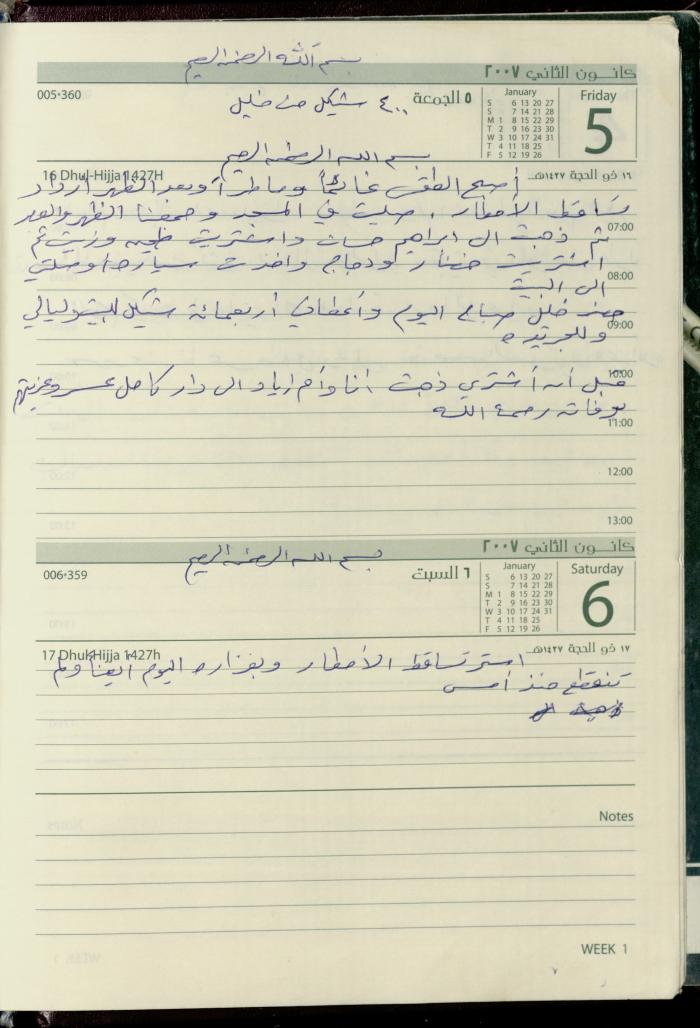 بسم الله الرحمن الرحيم
كانون الثاني ٢٠٠٧
005-360
٤٠٠ شيكل من خليل
٥ الجمعة
January
S 6 13 20 27
S 7 14 21 28
M 1 8 15 22 29
T 2 9 16 23 30
W 3 10 17 24 31
T 4 11 18 25
F 5 12 19 26
Friday
5
بسم الله الرحمن الرحيم
16 Dhul-Hijja 1427H
١٦ ذو الحجة ١٤٢٧هـ
أصبح الطقس غائماً وماطراً وبعد الظهر ازداد
تساقط الأمطار، صليت في المسجد وجمعنا الظهر والعصر
07:00
ثم ذهبت الى ابراهيم حسان واشتريت وزيت ثم
اشتريت خضار ودجاج واخذت سيارة اوصلتني
08:00
الى البيت
خليل صباح اليوم وأعطاني أربعمائة شيكل
09:00
وللجريدة
10:00
قبل أن أشتري ذهبت أنا وأم اياد الى دار كامل
بوفاته رحمة الله
11:00
12:00
13:00
كانون الثاني ٢٠٠٧
بسم الله الرحمن الرحيم
006-359
٦ السبت
January
S 6 13 20 27
S 7 14 21 28
M 1 8 15 22 29
T 2 9 16 23 30
W 3 10 17 24 31
T 4 11 18 25
F 5 12 19 26
Saturday
6
17 Dhul-Hijja 1427h
١٧ ذو الحجة ١٤٢٧هـ
استمر تساقط الأمطار وبغزاره اليوم ايضاً ولم
تنقطع منذ أمس
Notes
WEEK 1